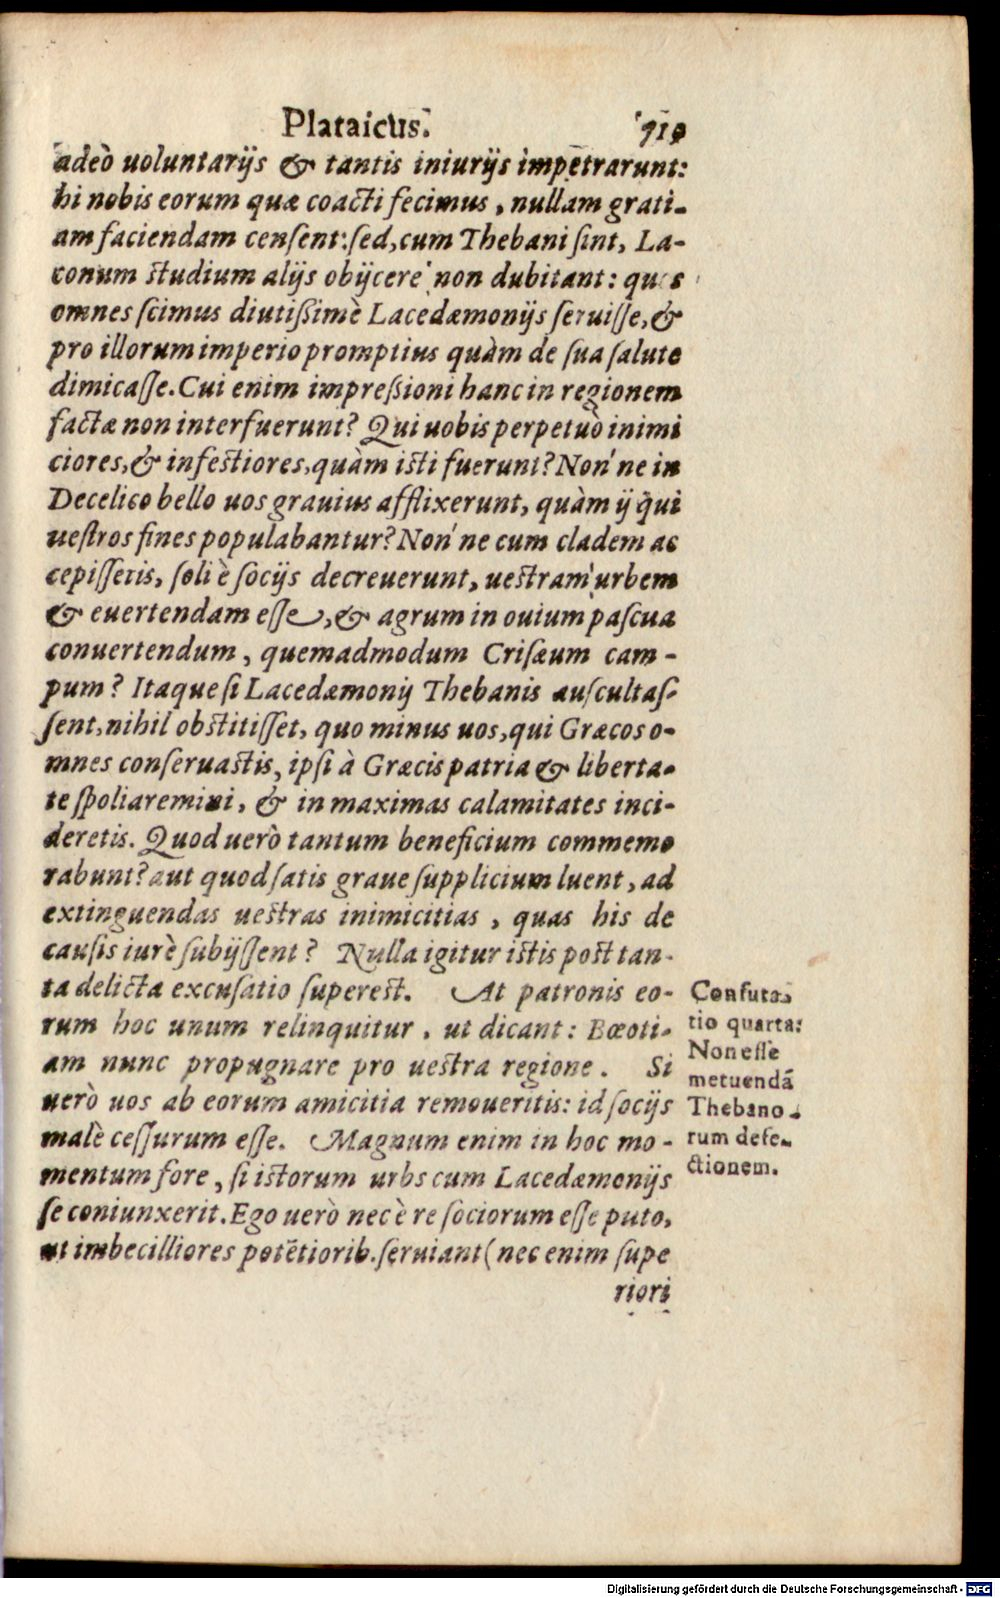 Plataicus. 719
adeò uoluntarijs & tantis iniurijs impetrarunt:
hi nobis eorum quæ coacti fecimus, nullam grati-
am faciendam censent: sed, cum Thebani sint, La-
conum studium alijs obijcere non dubitant: quos
omnes scimus diutißimè Lacedæmonijs seruisse, &
pro illorum imperio promptius quàm de sua salute
dimicasse. Cui enim impreßioni hanc in regionem
factæ non interfuerunt? Qui uobis perpetuò inimi
ciores, & infestiores, quàm isti fuerunt? Non'ne in
Decelico bello uos grauius afflixerunt, quàm ij qui
uestros fines populabantur? Non'ne cum cladem ac
cepissetis, soli è socijs decreuerunt, uestram urbem
& euertendam esse, & agrum in ouium pascua
conuertendum, quemadmodum Crisæum cam-
pum? Itaque si Lacedæmonij Thebanis auscultas-
sent, nihil obstitisset, quo minus uos, qui Græcos o-
mnes conseruastis, ipsi à Græcis patria & liberta-
te spoliaremini, & in maximas calamitates inci-
deretis. Quod uerò tantum beneficium commemo
rabunt? aut quod satis graue supplicium luent, ad
extinguendas uestras inimicitias, quas his de
causis iurè subijssent? Nulla igitur istis post tan-
ta delicta excusatio superest. At patronis eo-
rum hoc unum relinquitur, ut dicant: Bœoti-
am nunc propugnare pro uestra regione. Si
uerò uos ab eorum amicitia remoueritis: id socijs
malè cessurum esse. Magnum enim in hoc mo-
mentum fore, si istorum urbs cum Lacedæmonijs
se coniunxerit. Ego uerò nec è re sociorum esse puto,
ut imbecilliores potẽtiorib. seruiant (nec enim supe
riori
Confuta-
tio quarta:
Non esse
metuendã
Thebano-
rum defe-
ctionem.
Digitalisierung gefördert durch die Deutsche Forschungsgemeinschaft - DFG